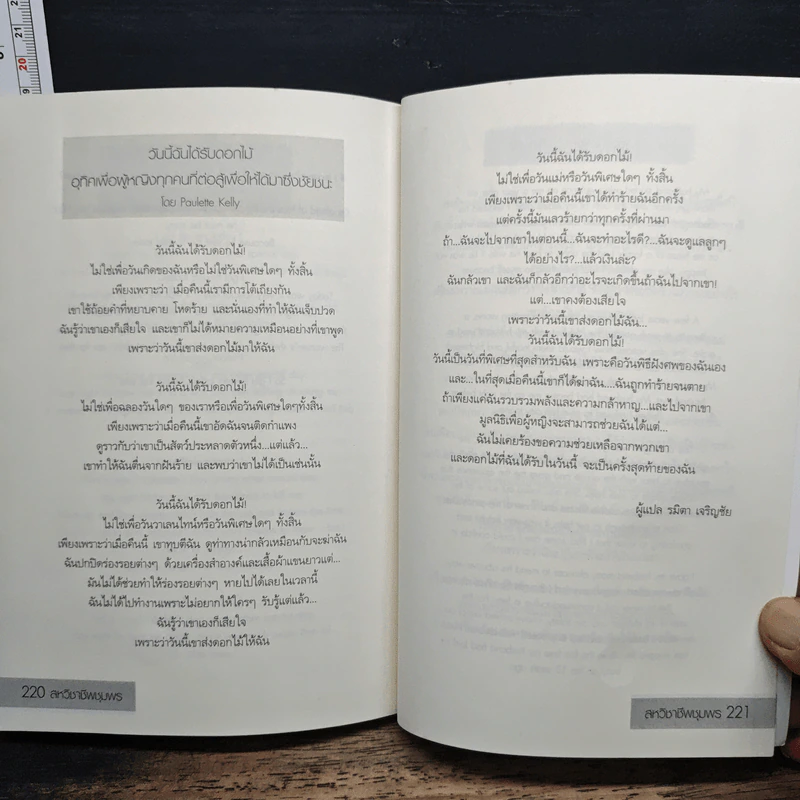 วันนี้ฉันได้รับดอกไม้
อุทิศเพื่อผู้หญิงทุกคนที่ต่อสู้เพื่อให้ได้มาซึ่งชัยชนะ
โดย Paulette Kelly
วันนี้ฉันได้รับดอกไม้!
ไม่ใช่เพื่อวันเกิดของฉันหรือไม่ใช่วันพิเศษใดๆ ทั้งสิ้น
เพียงเพราะว่า เมื่อคืนนี้เรามีการโต้เถียงกัน
เขาใช้ถ้อยคำที่หยาบคาย โหดร้าย และนั่นเองที่ทำให้ฉันเจ็บปวด
ฉันรู้ว่าเขาเองก็เสียใจ และเขาก็ไม่ได้หมายความเหมือนอย่างที่เขาพูด
เพราะว่าวันนี้เขาส่งดอกไม้มาให้ฉัน
วันนี้ฉันได้รับดอกไม้!
ไม่ใช่เพื่อฉลองวันใดๆ ของเราหรือเพื่อวันพิเศษใดๆทั้งสิ้น
เพียงเพราะว่าเมื่อคืนนี้เขาอัดฉันจนติดกำแพง
ดูราวกับว่าเขาเป็นสัตว์ประหลาดตัวหนึ่ง...แต่แล้ว...
เขาทำให้ฉันตื่นจากฝันร้าย และพบว่าเขาไม่ได้เป็นเช่นนั้น
วันนี้ฉันได้รับดอกไม้!
ไม่ใช่เพื่อวันวาเลนไทน์หรือวันพิเศษใดๆ ทั้งสิ้น
เพียงเพราะว่าเมื่อคืนนี้ เขาทุบตีฉัน ดูท่าทางน่ากลัวเหมือนกับจะฆ่าฉัน
ฉันปกปิดร่องรอยต่างๆ ด้วยเครื่องสำอางค์และเสื้อผ้าแขนยาวแต่...
มันไม่ได้ช่วยทำให้ร่องรอยต่างๆ หายไปได้เลยในเวลานี้
ฉันไม่ได้ไปทำงานเพราะไม่อยากให้ใครๆ รับรู้แต่แล้ว...
ฉันรู้ว่าเขาเองก็เสียใจ
เพราะว่าวันนี้เขาส่งดอกไม้ให้ฉัน
220 สหวิชาชีพชุมพร
วันนี้ฉันได้รับดอกไม้!
ไม่ใช่เพื่อวันแม่หรือวันพิเศษใดๆ ทั้งสิ้น
เพียงเพราะว่าเมื่อคืนนี้เขาได้ทำร้ายฉันอีกครั้ง
แต่ครั้งนี้มันเลวร้ายกว่าทุกครั้งที่ผ่านมา
ถ้า...ฉันจะไปจากเขาในตอนนี้...ฉันจะทำอะไรดี?...ฉันจะดูแลลูกๆ
ได้อย่างไร?...แล้วเงินล่ะ?
ฉันกลัวเขา และฉันก็กลัวอีกว่าอะไรจะเกิดขึ้นถ้าฉันไปจากเขา!
แต่...เขาคงต้องเสียใจ
เพราะว่าวันนี้เขาส่งดอกไม้ฉัน...
วันนี้ฉันได้รับดอกไม้!
วันนี้เป็นวันที่พิเศษที่สุดสำหรับฉัน เพราะคือวันพิธีฝังศพของฉันเอง
และ...ในที่สุดเมื่อคืนนี้เขาก็ได้ฆ่าฉัน....ฉันถูกทำร้ายจนตาย
ถ้าเพียงแค่ฉันรวบรวมพลังและความกล้าหาญ...และไปจากเขา
มูลนิธิเพื่อผู้หญิงจะสามารถช่วยฉันได้แต่...
ฉันไม่เคยร้องขอความช่วยเหลือจากพวกเขา
และดอกไม้ที่ฉันได้รับในวันนี้ จะเป็นครั้งสุดท้ายของฉัน
ผู้แปล รมิตา เจริญชัย
สหวิชาชีพชุมพร 221
20
21